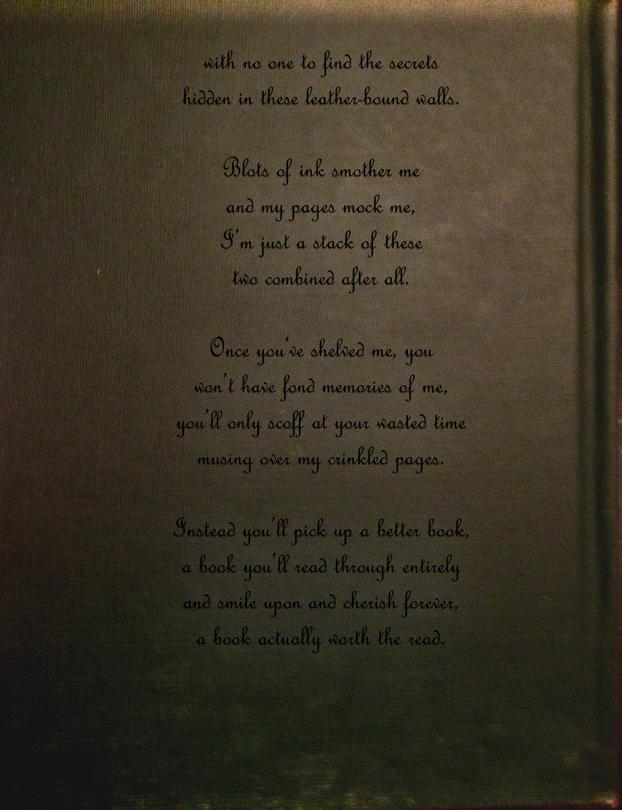 with no one to find the secrets
hidden in these leather-bound walls.
Blots of ink smother me
and my pages mock me,
I'm just a stack of these
two combined after all.
Once you've shelved me, you
won't have fond memories of me,
you'll only scoff at your wasted time
musing over my crinkled pages.
Instead you'll pick up a better book,
a book you'll read through entirely
and smile upon and cherish forever,
a book actually worth the read.